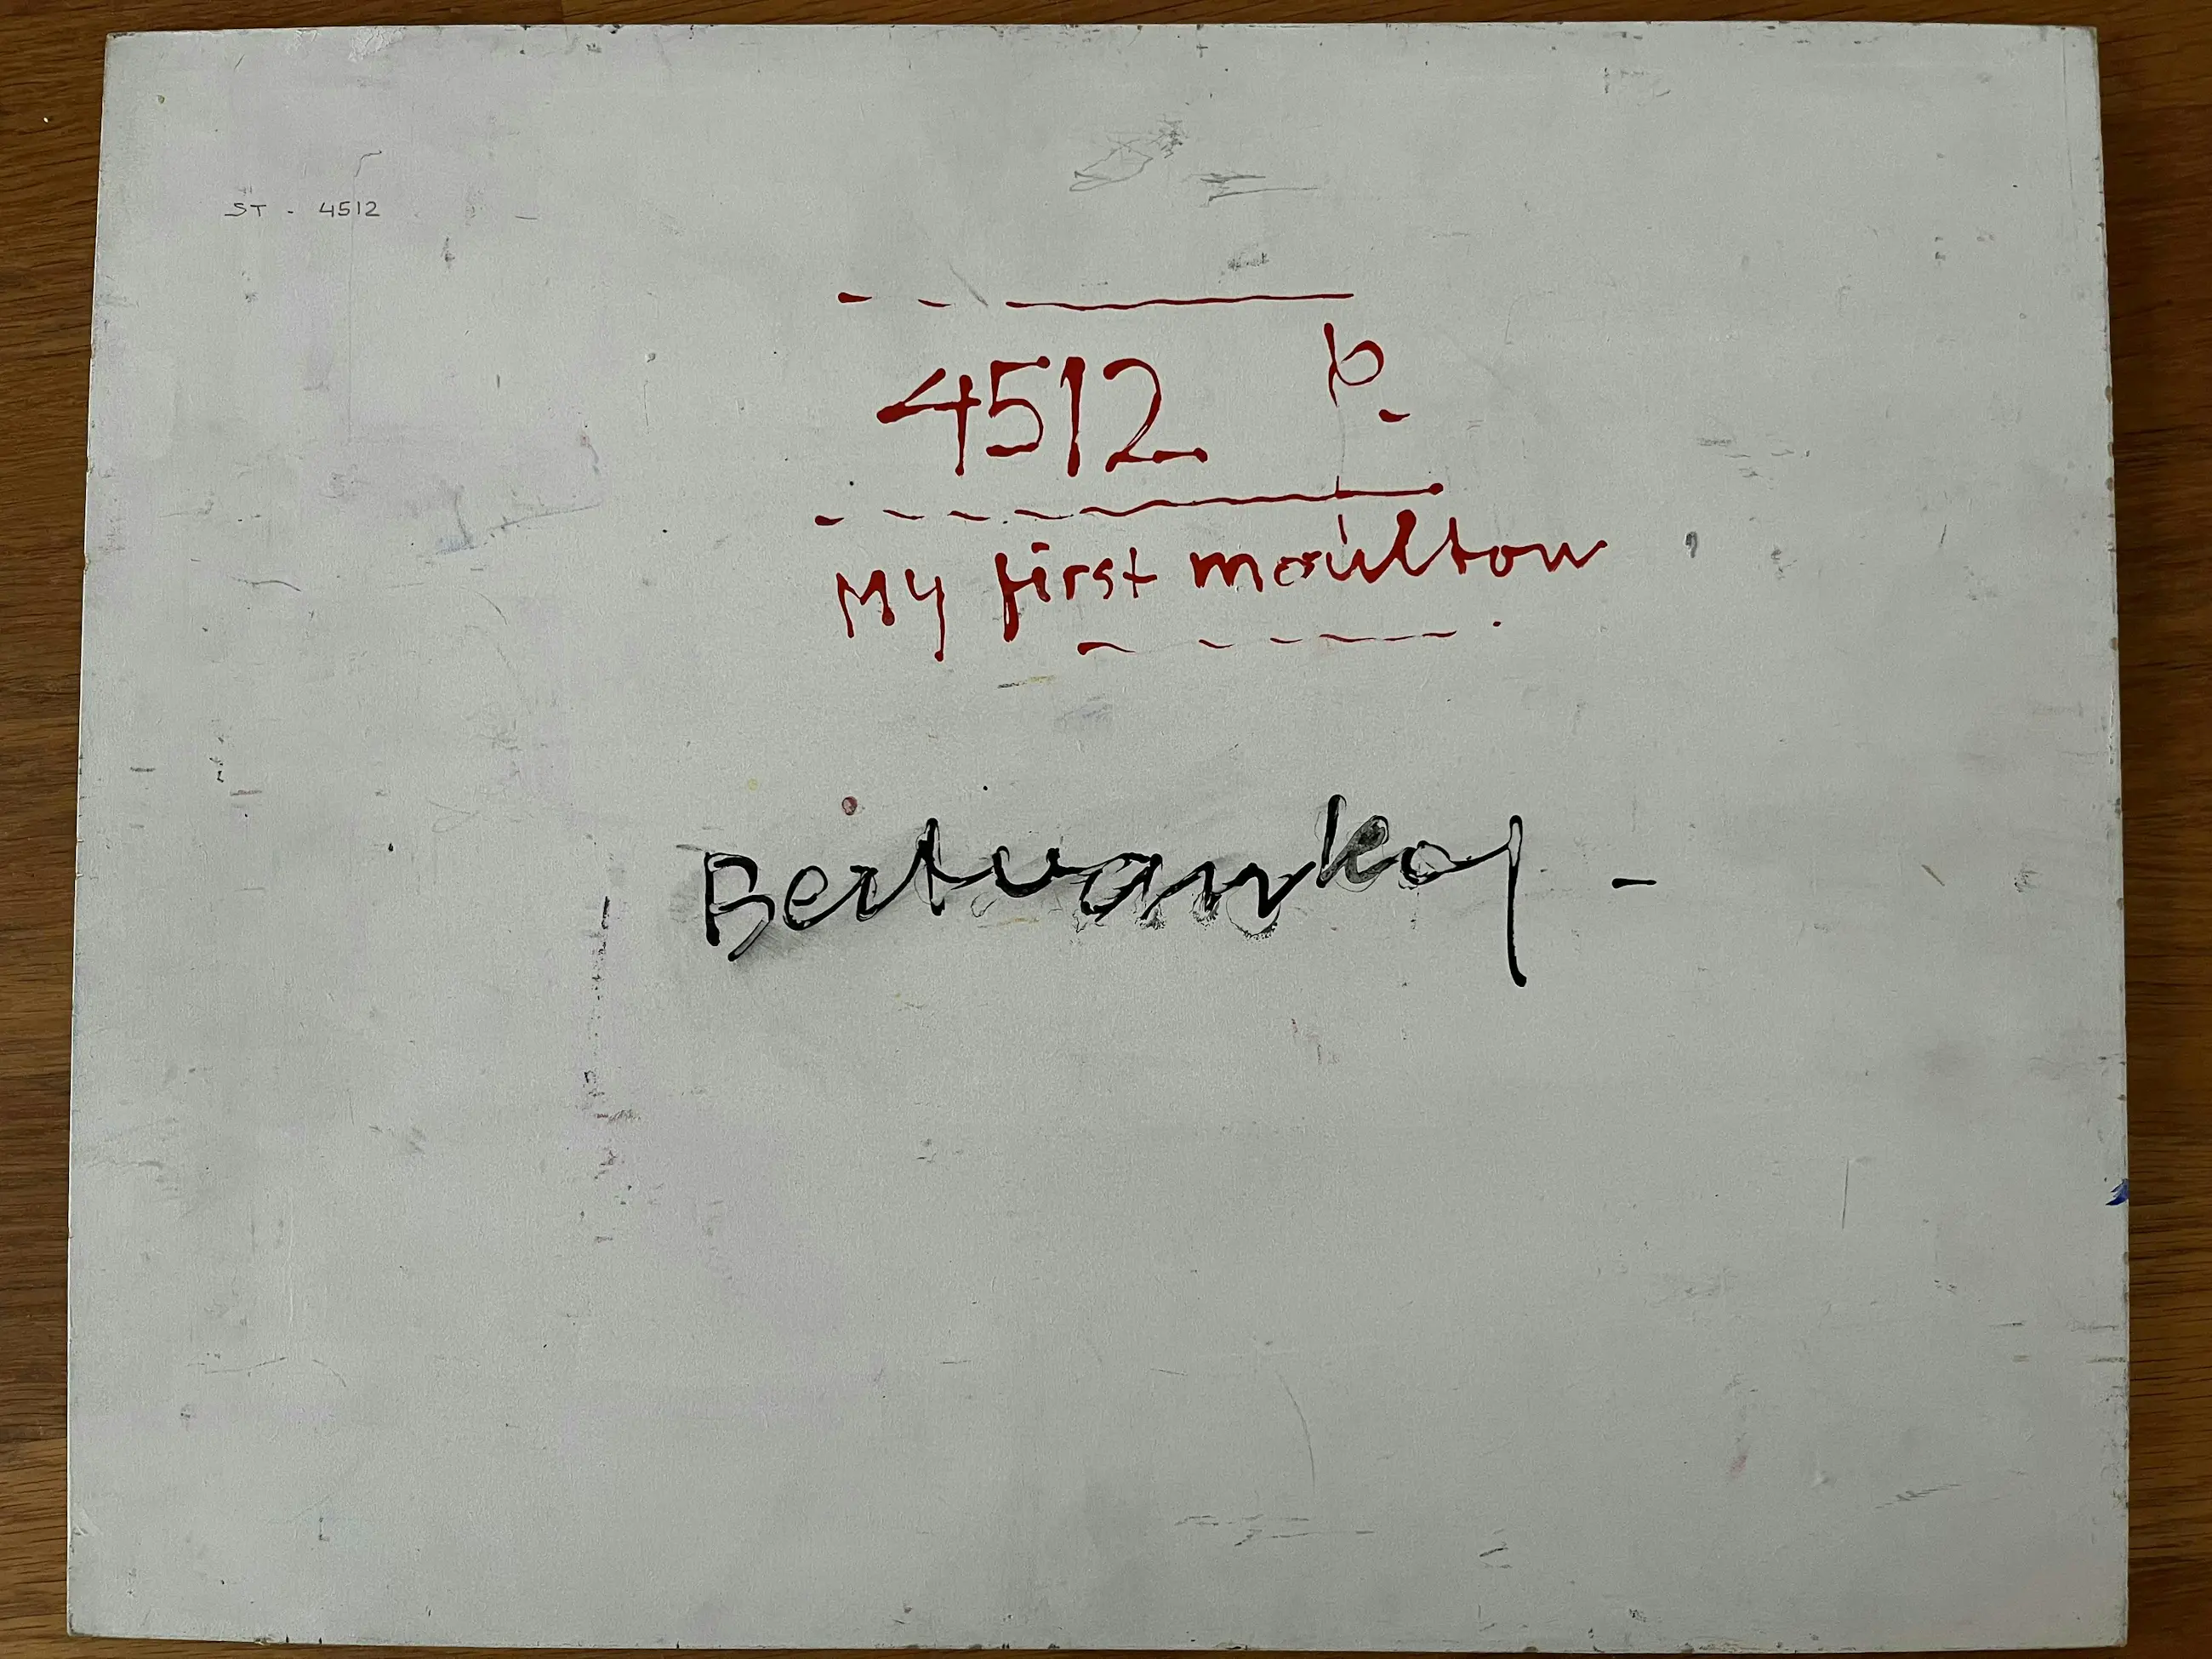 ST - 4512
4512 P.
My first moulton
Bertvankoj -